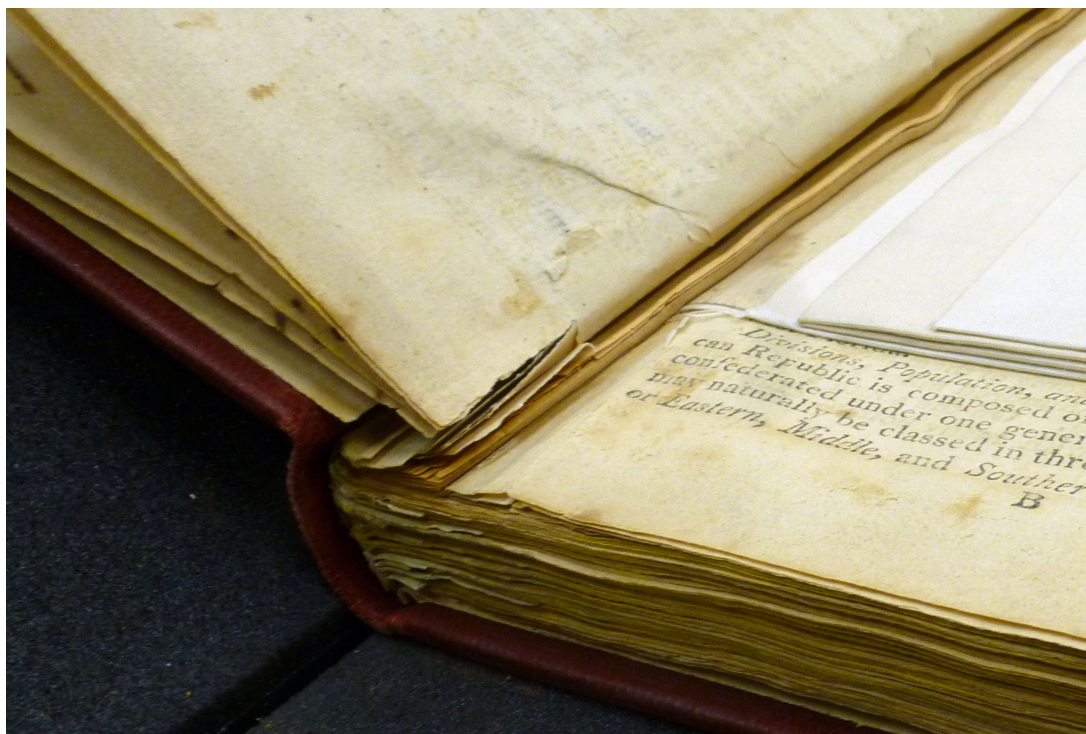 Divisions, Population, an
can Republic is composed o
confederated under one gener
may naturally be classed in thr
or Eastern, Middle, and Souther
B